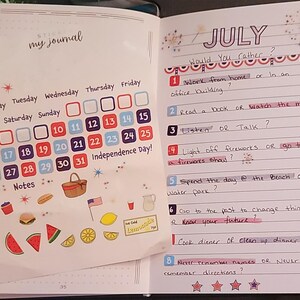 my journal
Tuesday Wednesday Thursday Friday
Saturday Sunday
10 11 12 13 14 15
17 18 19 20 21 22 23 24 25
27 28 29 30 31
Independence Day!
Notes
Lemonade
JULY
Would You rather?
1 Work from home or in an
office building?
2 Read a book or watch the
3 Listen or Talk?
4 Light off fireworks or go to
a fireworks show?
5 Spend the day @ the Beach or
water park?
6 Go to the past to change things
or know your future?
Cook dinner or clean up dinner
8 Remember names or Never
remember directions?